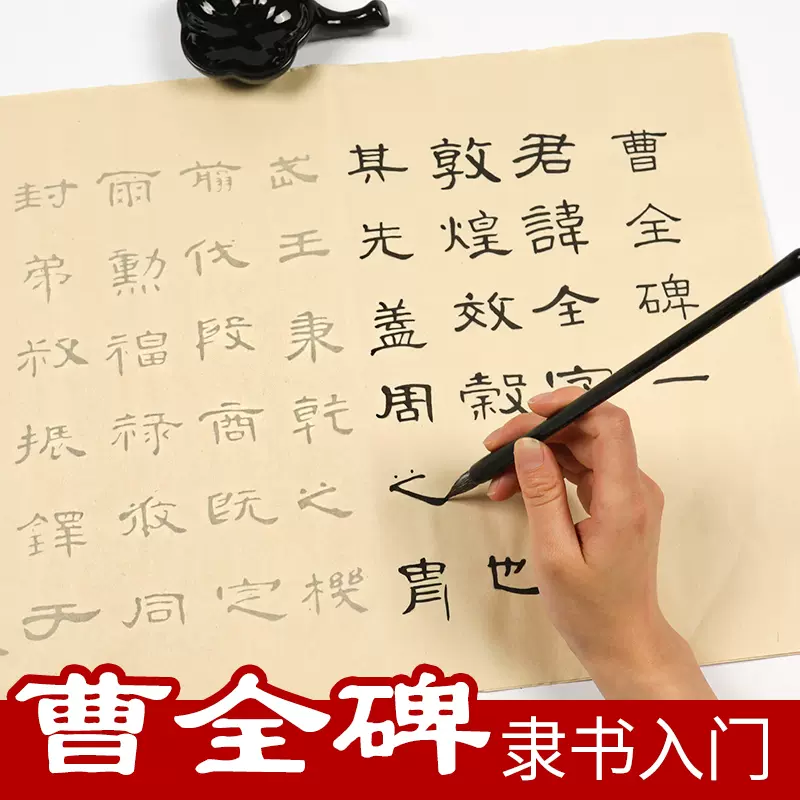 曹全碑一
君諱全字
敦煌效穀也
其先盖周之胄
武王秉乾之機
翦伐殷商既定
爾勳福祿攸同
封弟叔振鐸于
曹全碑
隶书入门